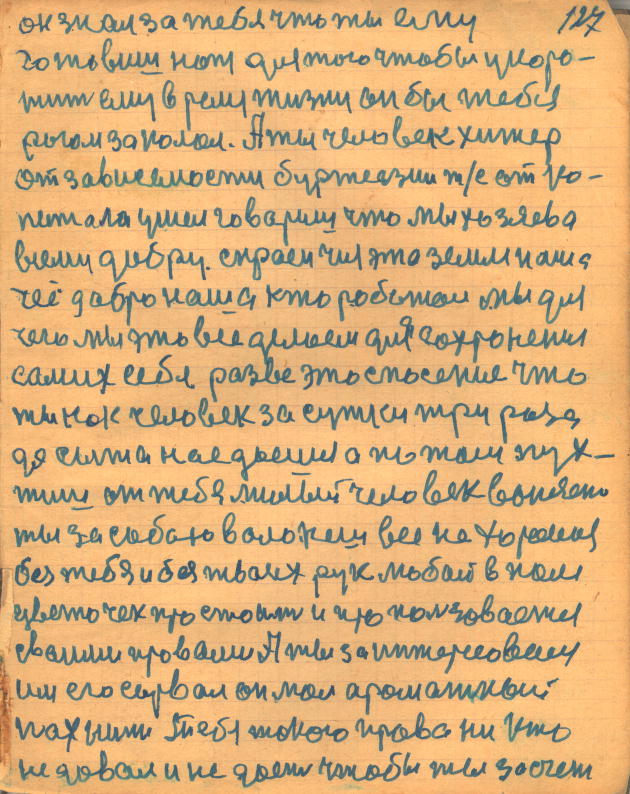 он знал за тебя что ты ему 127
готовиш нож для того чтобы укоро-
тит ему время жизни он бы тебя
рогом заполол. А ты человек хитер
от зависемости буржеазии т/е от ко-
петала ушел говориш что мы хозяева
всему добру. спраси чия это земля наша
чеё добро наша кто роботал мы для
чего мы это все делаем для сохронения
самих себя разве это спосение что
ты как человек за сутки три раза
до сыта наедаешся а потом
от тебя милый человек
ты за собаю волокеш все на хорошея
без тебя и без твоих рук любой в поле
цветочек простоит и прользовается
своими провами А ты заинтересовался
им его сорвал он мол ароматный
пахнит Тебе токого права ни кто
не довал и не дает чтобы ты за счет